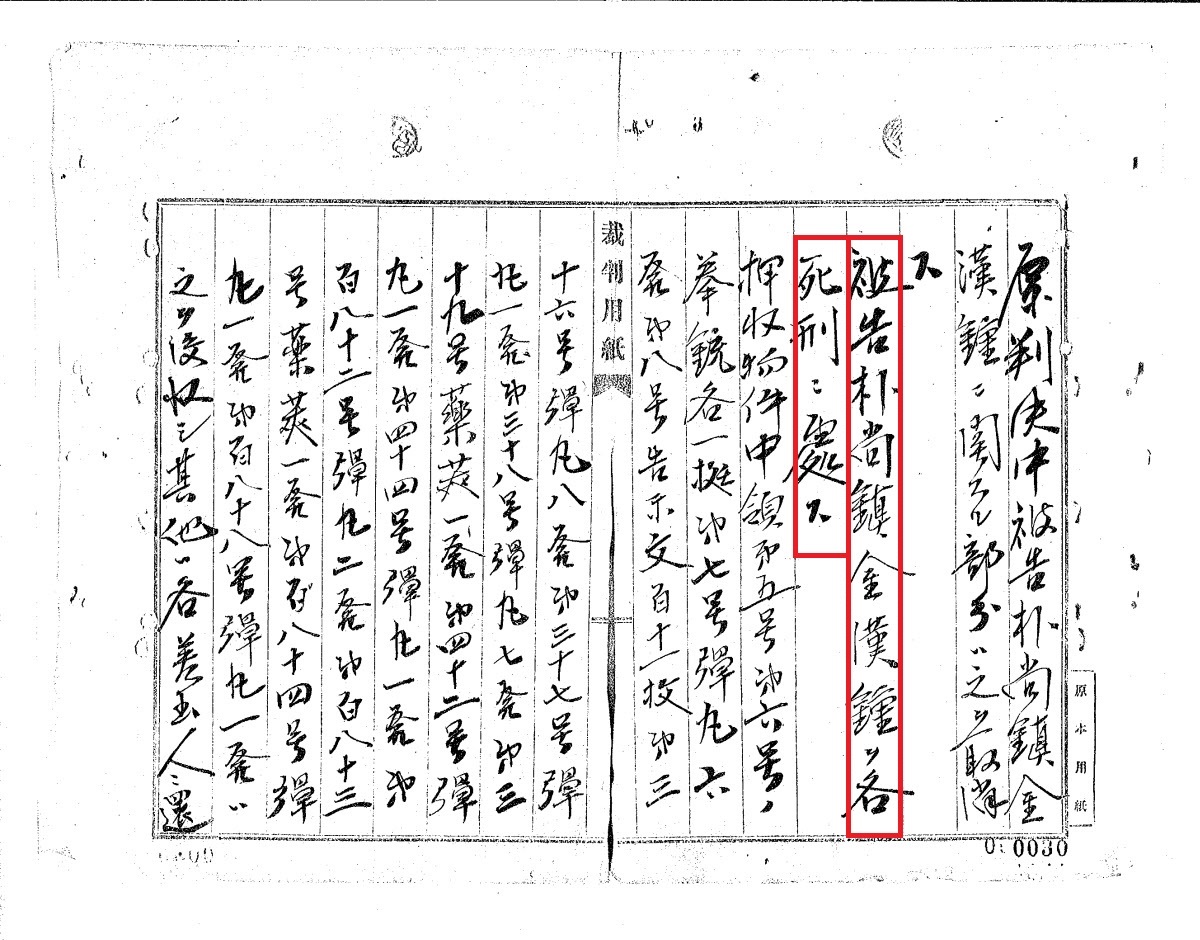 原判決中被告朴尚鎮金
漢鍾ニ関スル部分ハ之ヲ取消
ス
被告朴尚鎮金漢鍾ヲ各
死刑ニ処ス
押収物件中領第五号第六号ノ
拳銃各一挺第七号弾丸六
発第八号告示文百十一枚第三
裁判用紙
十六号弾丸八発第三十七号弾
丸一発第三十八号弾丸七発第三
十九号薬莢一発第四十二号弾
丸一発第四十四号弾丸一発第
百八十二号弾丸二発第百八十三
号薬莢一発第百八十四号弾
丸一発第百八十八号弾丸一発ハ
之ヲ没収シ其他ハ各差出人ニ還
原本用紙
0030